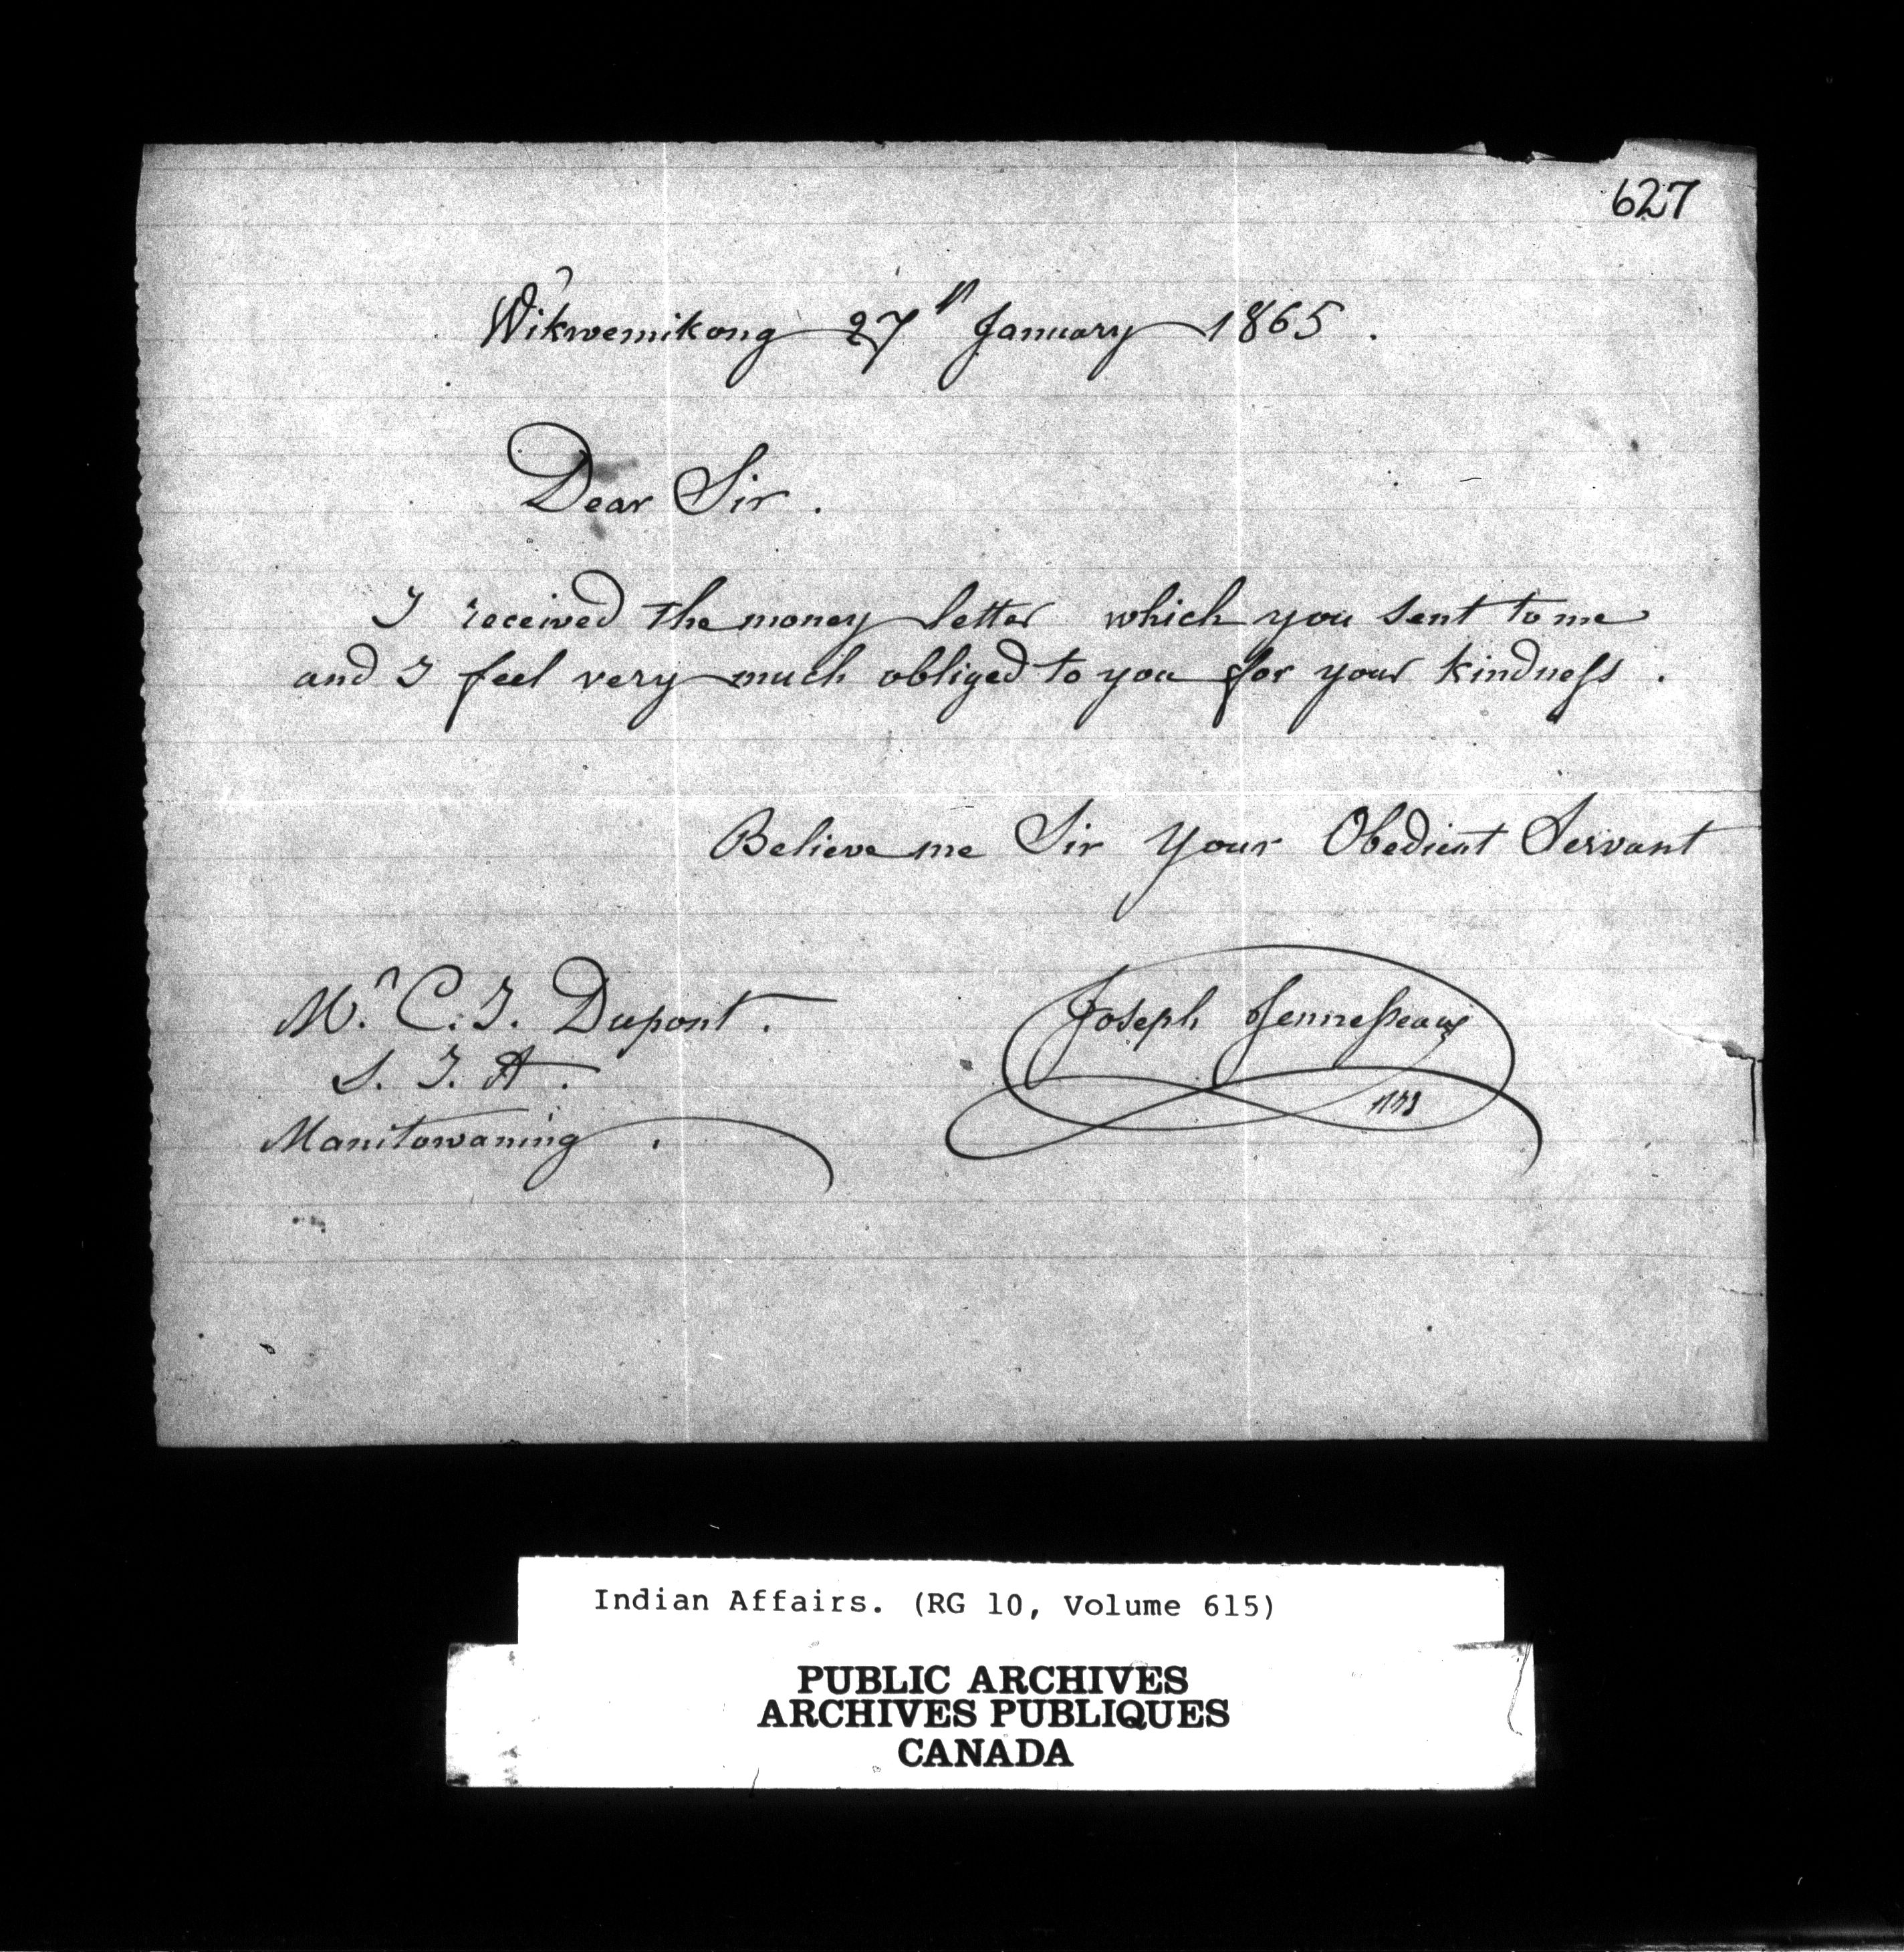 627
Wikwemikong 27th January 1865.
Dear Sir.
I received the money letter which you sent to me
and I feel very much obliged to you for your kindness.
Believe me Sir Your Obedient Servant
Mr. C. I. Dupont.
S. I. A.
Manitowaning.
Joseph Jennesseaux
Indian Affairs. (RG 10, Volume 615)
PUBLIC ARCHIVES
ARCHIVES PUBLIQUES
CANADA